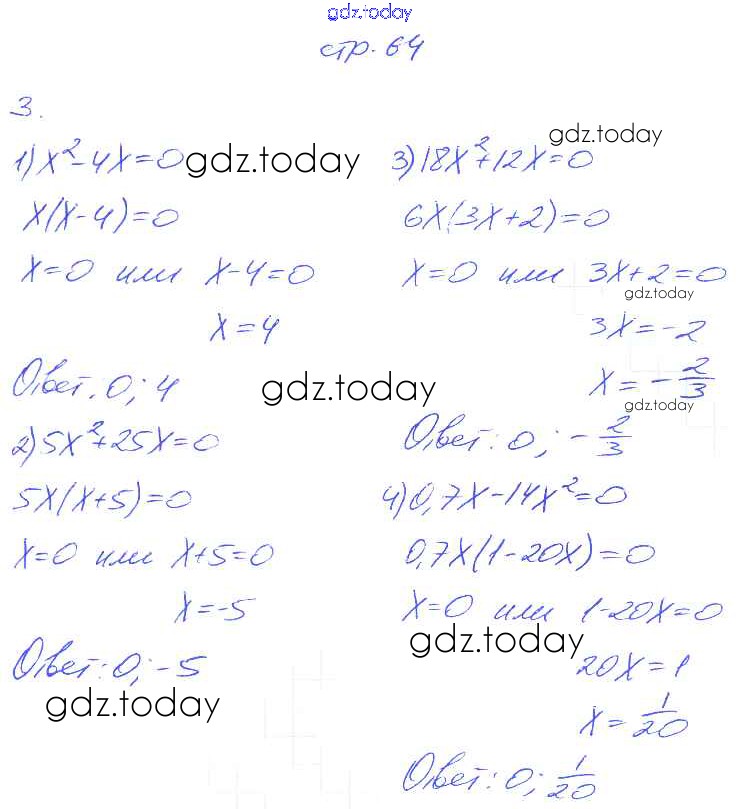 gdz.today
стр. 64
3.
1) x² - 4x = 0 gdz.today
x(x - 4) = 0
x = 0 или x - 4 = 0
x = 4
Ответ: 0; 4 gdz.today
2) 5x² + 25x = 0
5x(x + 5) = 0
x = 0 или x + 5 = 0
x = -5
Ответ: 0; -5
gdz.today
gdz.today
3) 18x² + 12x = 0
6x(3x + 2) = 0
x = 0 или 3x + 2 = 0
gdz.today
3x = -2
x = -2/3
gdz.today
Ответ: 0; -2/3
4) 0,7x - 14x² = 0
0,7x(1 - 20x) = 0
x = 0 или 1 - 20x = 0
gdz.today
20x = 1
x = 1/20
Ответ: 0; 1/20